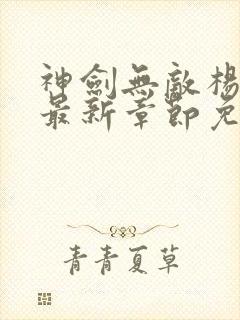 神劍無敵楊
最新章節免
青青夏草